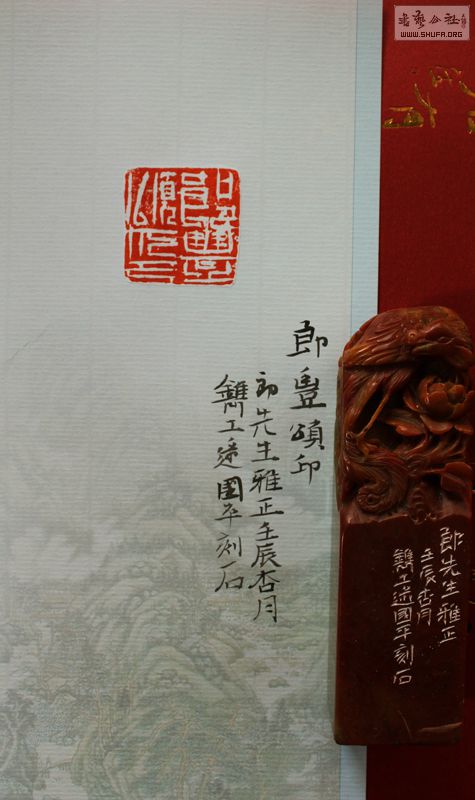 書藝公社
WWW.SHUFA.ORG
郎豊頌印
郎先生雅正壬辰杏月
鐫工逯國平刻石
郎先生雅正
壬辰杏月
鐫工逯國平刻石